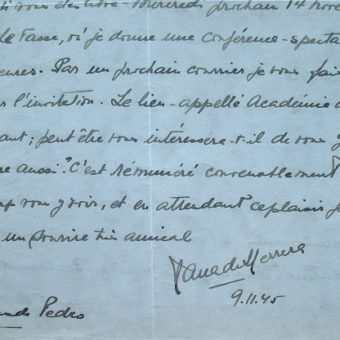 vous êtes libre - Mercredi prochain 14 nov
le Tasse, où je donne une conférence-specta
eures. Par un prochain courrier je vous fai
l'invitation. Le lieu - appellé Académie
ant; peut être vous intéressera-t-il de vous y
re aussi? C'est rémunéré convenablement
vous y vois, et en attendant ce plaisir je
un sourire très amical
9.11.45
Pedro